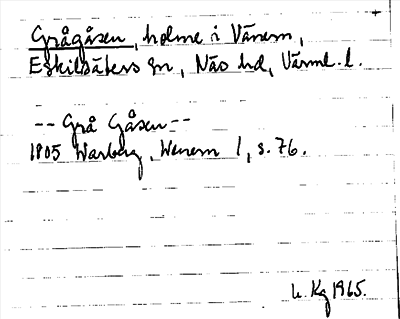 Grågåsen, holme i Vänern,
Eskilsäters sn, Näs hd, Värml. l.
-- Grå Gåsen --
1805 Warberg, Wenern 1, s. 76.
Kg 1965.